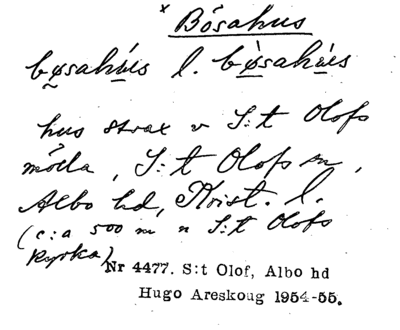 x Bósahus
bø̜sahús l. bø̀sahús
hus strax v S:t Olofs
mölla, S:t Olofs sn,
Albo hd, Krist. l.
(c:a 500 m n S:t Olofs
kyrka)
Nr 4477. S:t Olof, Albo hd
Hugo Areskoug 1954-55.